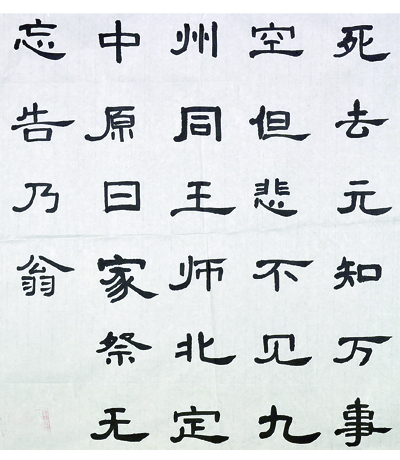 死去元知万事
空但悲不见九
州同王师北定
中原日家祭无
忘告乃翁